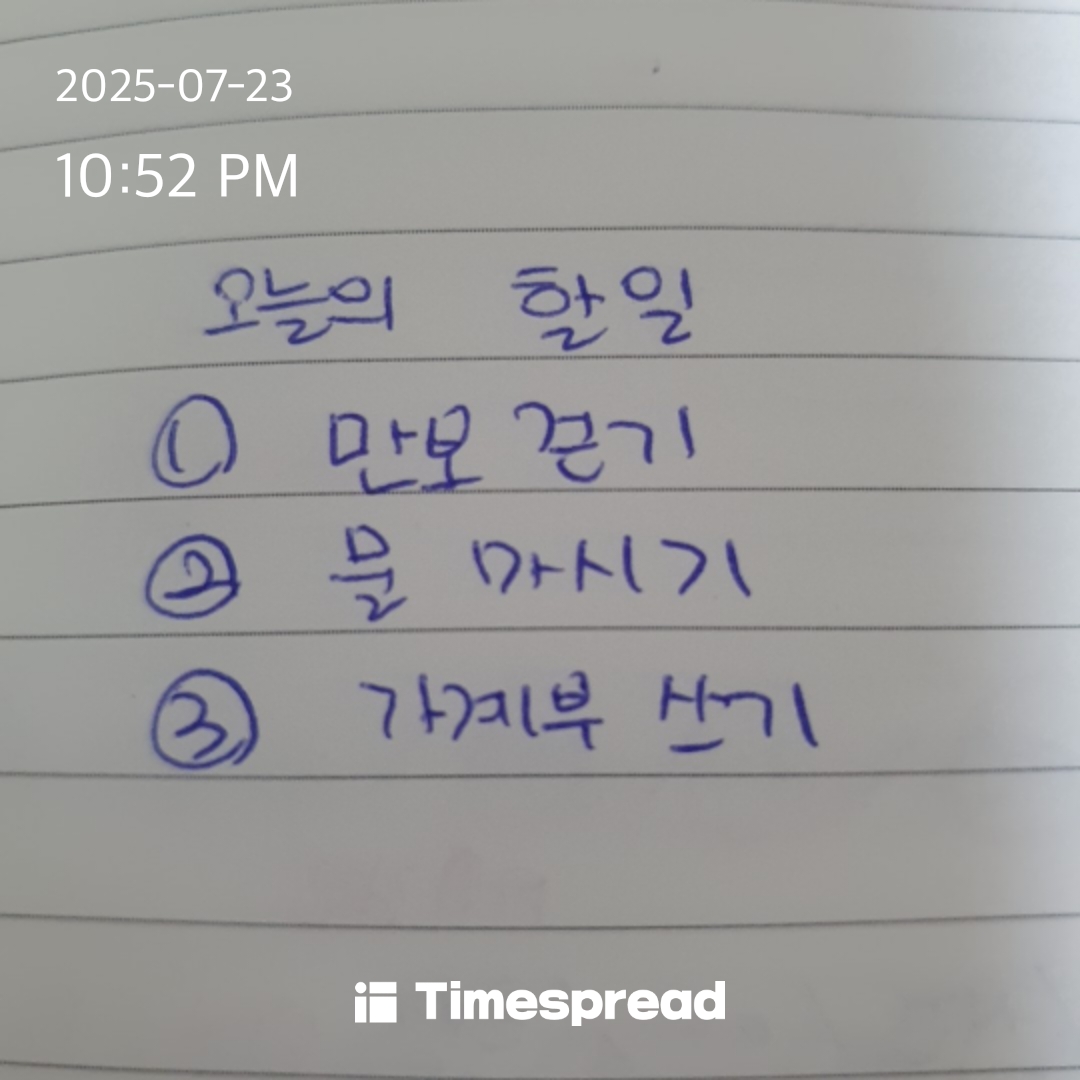 2025-07-23
10:52 PM
오늘의 할일
① 만보 걷기
② 물 마시기
③ 가계부 쓰기
Timespread